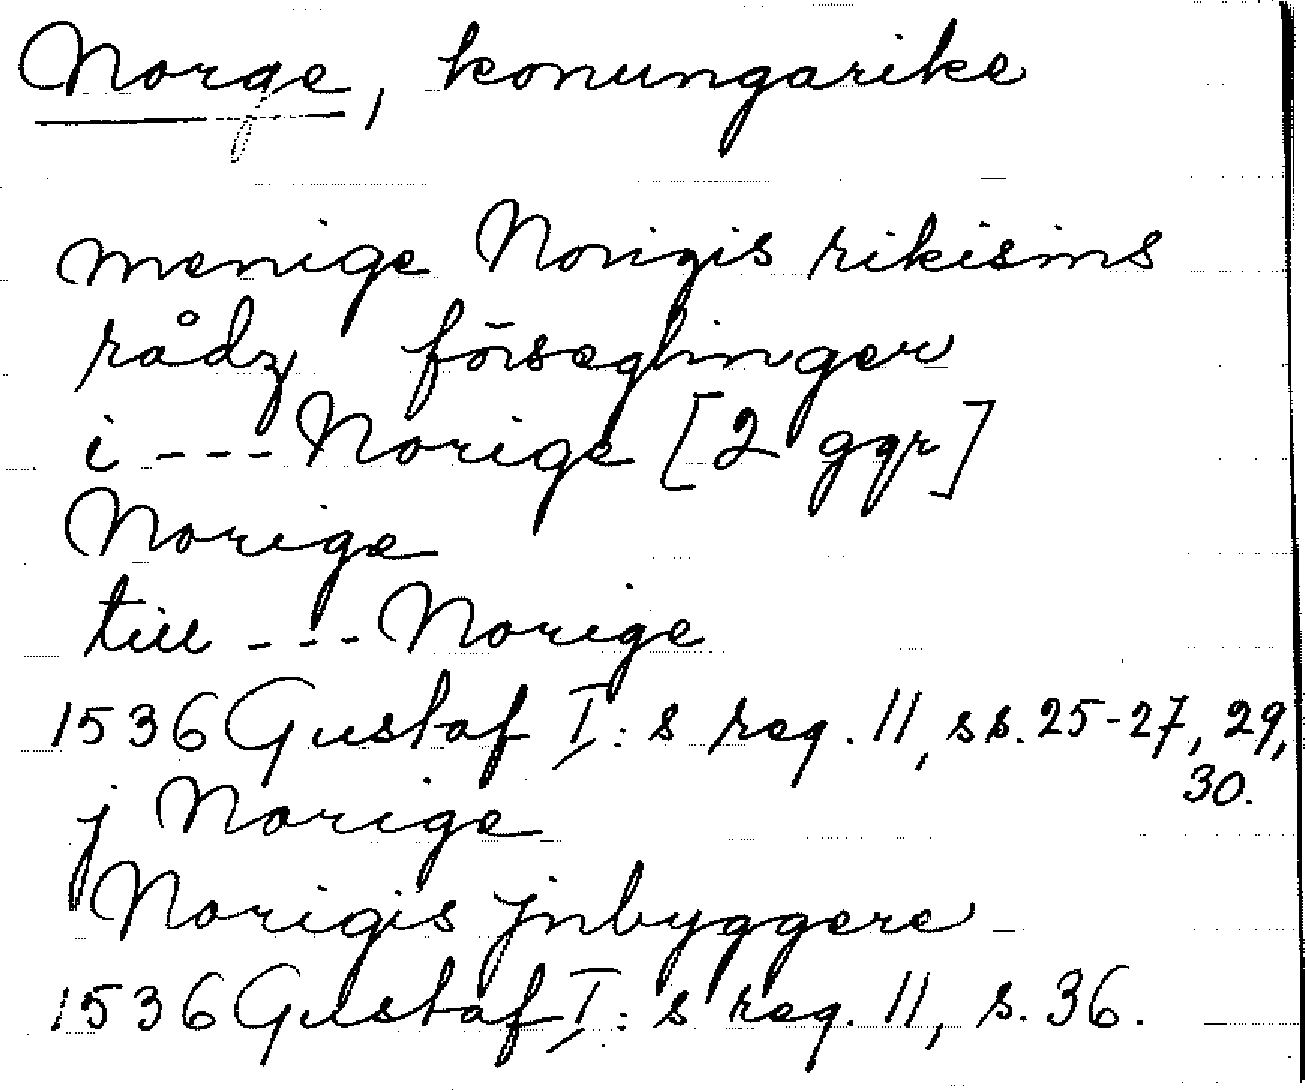 Norge, konungarike
menige Norigis rikisins
rådz förseglinger
i --- Norige [2 ggr]
Norige
till --- Norige
1536 Gustaf I:s reg. 11, ss. 25-27, 29,
30.
j Norige
Norigis jnbyggere
1536 Gustaf I:s reg. 11, s. 36.